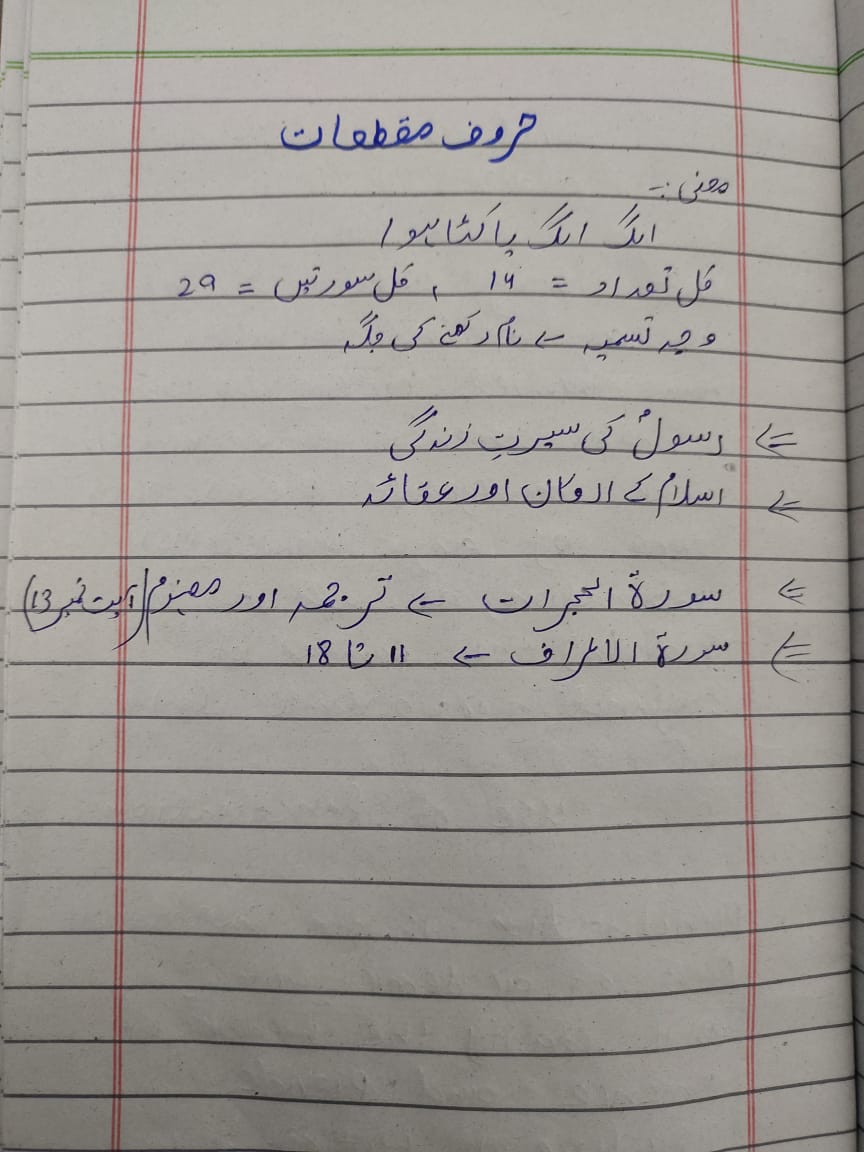 حروف مقطعات
معنی:-
الگ الگ یا کٹا ہوا
کل تعداد = 14 ، کل سورتیں = 29
وجہ تسمیہ ← نام رکھنے کی جگہ
⇐ رسولؐ کی سیرتِ زندگی
⇐ اسلام کے ارکان اور عقائد
⇐ سورۃ الحجرات ← ترجمہ اور مفہوم (آیت نمبر 13)
⇐ سورۃ الاعراف ← 11 تا 18